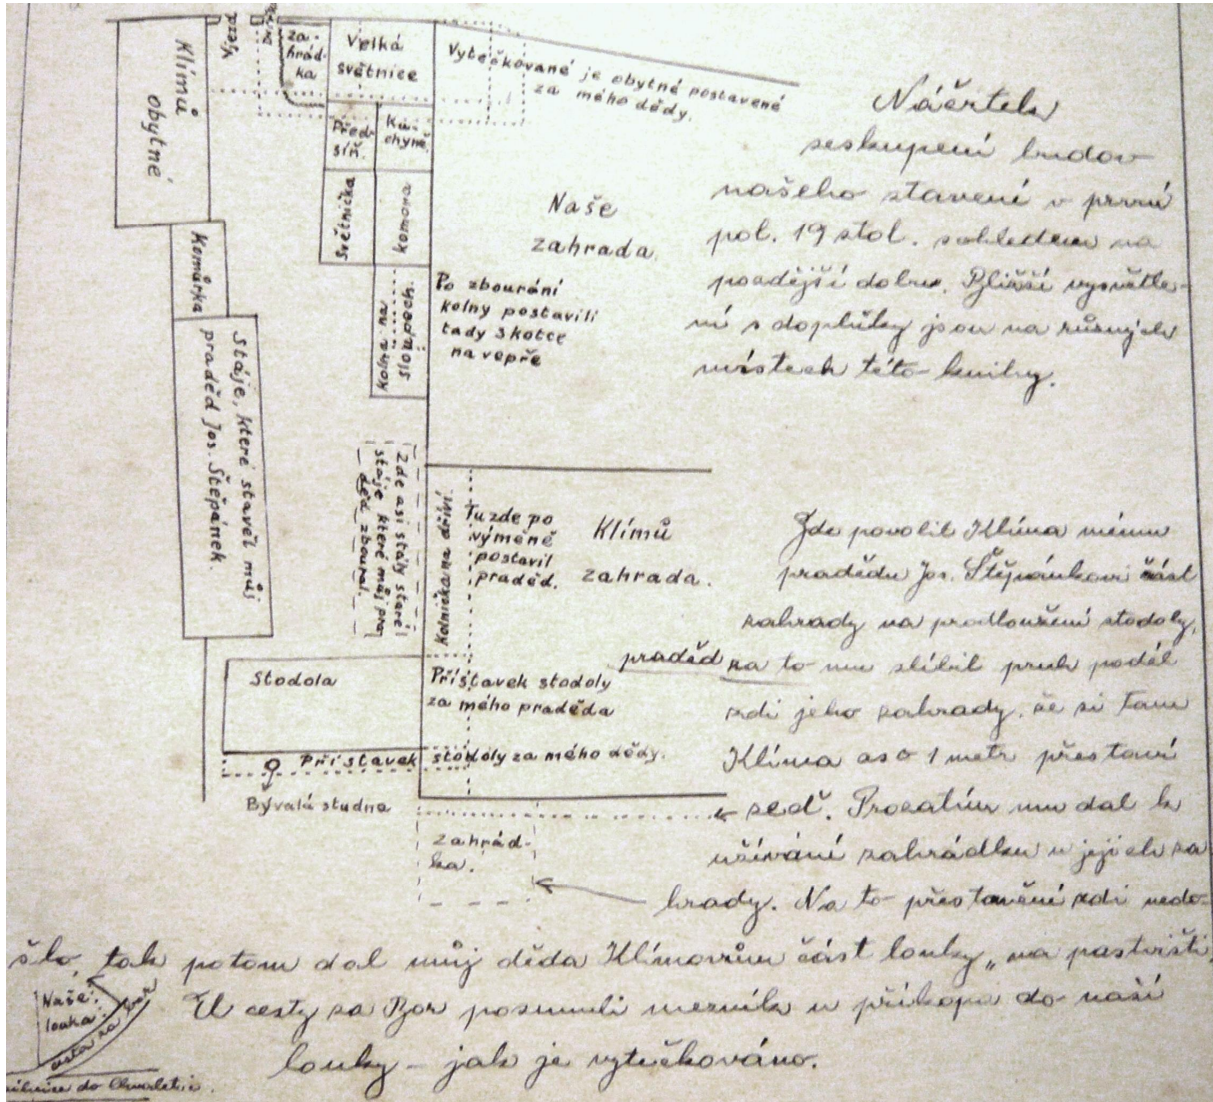 Klímů
obytné
Vjezd
za-
hrád-
ka
Velká
světnice
Vytečkované je obytné postavené
za mého dědy.
Před-
síň.
Ku-
chyně.
Světnička
komora
Naše
zahrada.
Komůrka
kolna na
sloupech.
Po zbourání
kolny postavili
tady 3 kotce
na vepře
Stáje, které stavěl můj
praděd Jos. Štěpánek.
Zde asi stály staré
stáje které můj pra-
děd zboural.
Kolnička na dříví.
Tu zde po
výměně
postavil
praděd.
Klímů
zahrada.
Stodola
Přístavek stodoly
za mého praděda
Přístavek stodoly za mého dědy.
Bývalá studna
zahrád-
ka.
Náčrtek
seskupení budov
našeho stavení v první
pol. 19 stol. s ohledem na
pozdější dobu. Bližší vysvětle-
ní s doplňky jsou na různých
místech této knihy.
Zde povolil Klíma mému
pradědu Jos. Štěpánkovi část
zahrady na prodloužení stodoly,
praděd za to mu slíbil pruh podél
zdi jeho zahrady, že si tam
Klíma aso 1 metr přestaví
zeď. Prozatím mu dal k
užívání zahrádku u jejich za
hrady. Na to přestavění zdi nedo-
šlo, tak potom dal můj děda Klímovům část louky „na pastvišti.
U cesty za Bor posunuli mezník u příkopu do naší
louky – jak je vytečkováno.
Naše
louka
cesta za Bor
silnice do Chvaletic.